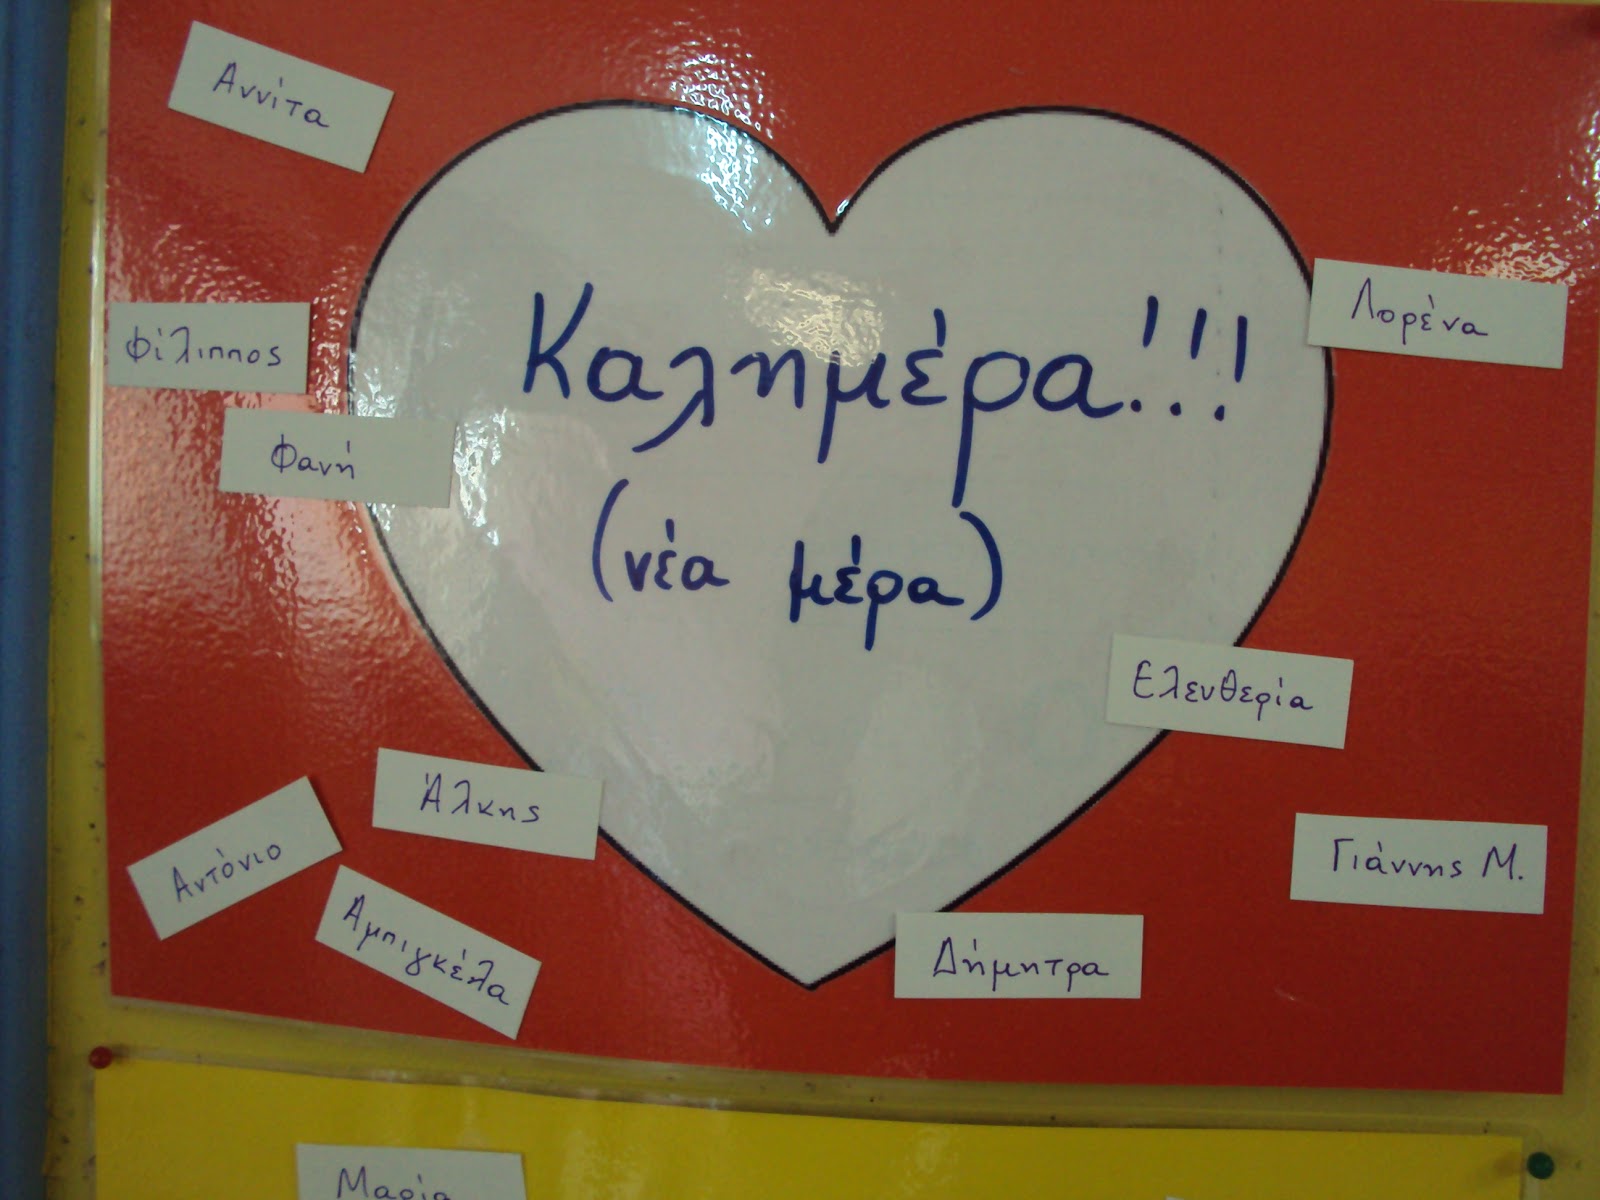 Αννίτα
Λορένα
Φίλιππος
Φανή
Καλημέρα!!!
(νέα μέρα)
Ελευθερία
Άλκης
Αντόνιο
Αμπιγκέλα
Γιάννης Μ.
Δήμητρα
Μαρία